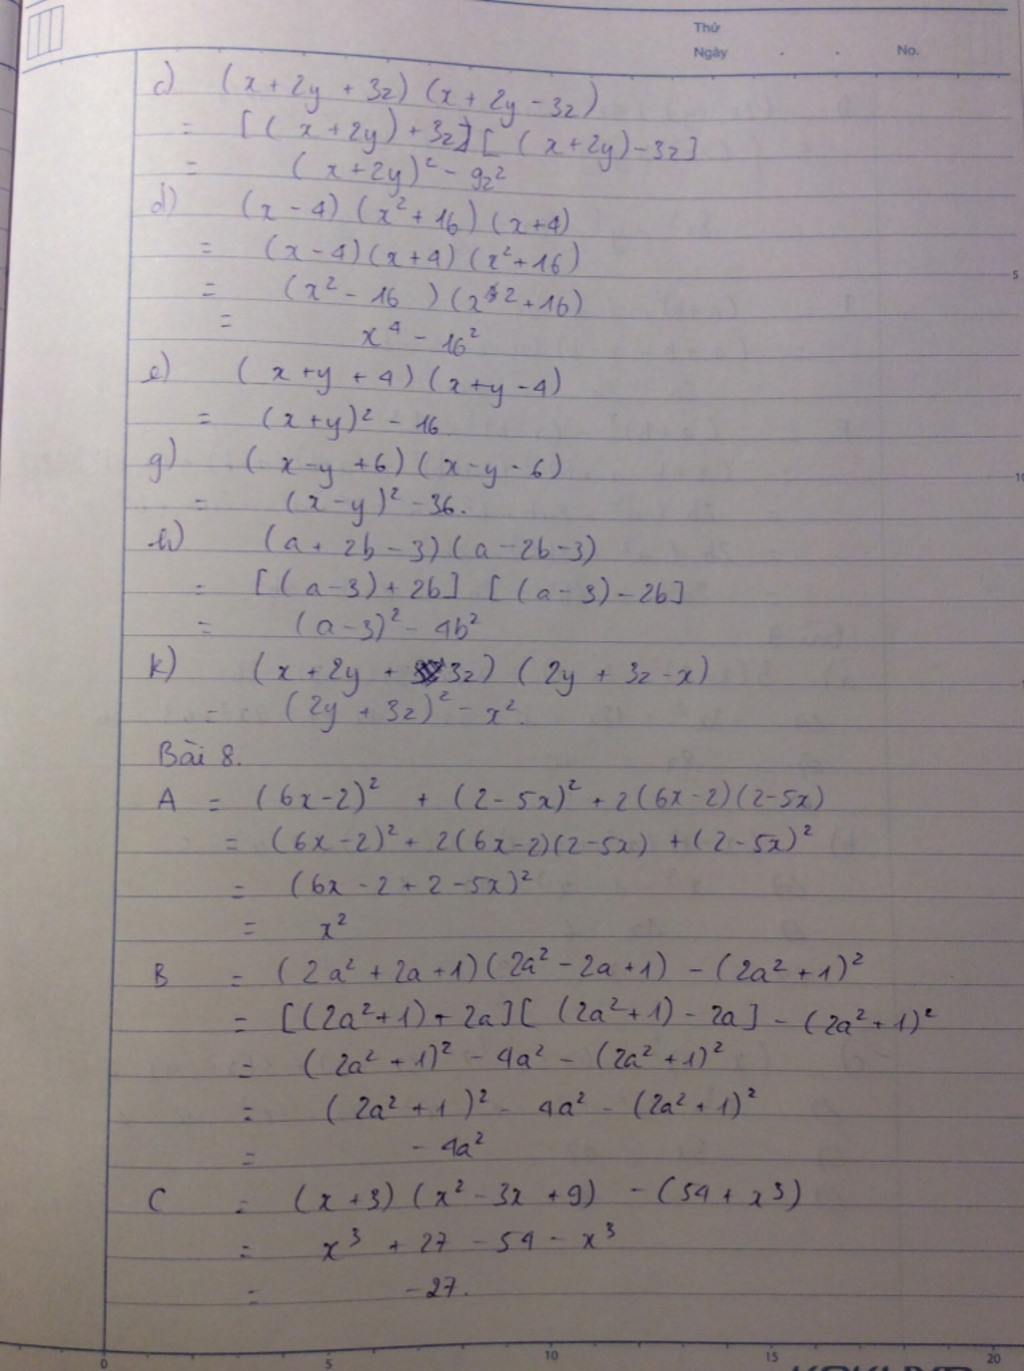 Thứ
Ngày . . No.
c) (x + 2y + 3z) (x + 2y - 3z)
= [(x + 2y) + 3z] [(x + 2y) - 3z]
= (x + 2y)² - 9z²
d) (x - 4) (x² + 16) (x + 4)
= (x - 4) (x + 4) (x² + 16)
= (x² - 16) (x² + 16)
= x⁴ - 16²
e) (x + y + 4) (x + y - 4)
= (x + y)² - 16
g) (x - y + 6) (x - y - 6)
= (x - y)² - 36.
h) (a + 2b - 3) (a - 2b - 3)
= [(a - 3) + 2b] [(a - 3) - 2b]
= (a - 3)² - 4b²
k) (x + 2y + 3z) (2y + 3z - x)
= (2y + 3z)² - x².
Bài 8.
A = (6x - 2)² + (2 - 5x)² + 2(6x - 2)(2 - 5x)
= (6x - 2)² + 2(6x - 2)(2 - 5x) + (2 - 5x)²
= (6x - 2 + 2 - 5x)²
= x²
B = (2a² + 2a + 1)(2a² - 2a + 1) - (2a² + 1)²
= [(2a² + 1) + 2a][(2a² + 1) - 2a] - (2a² + 1)²
= (2a² + 1)² - 4a² - (2a² + 1)²
= (2a² + 1)² - 4a² - (2a² + 1)²
= - 4a²
C = (x + 3) (x² - 3x + 9) - (54 + x³)
= x³ + 27 - 54 - x³
= -27.
5
10
0 5 10 15 20